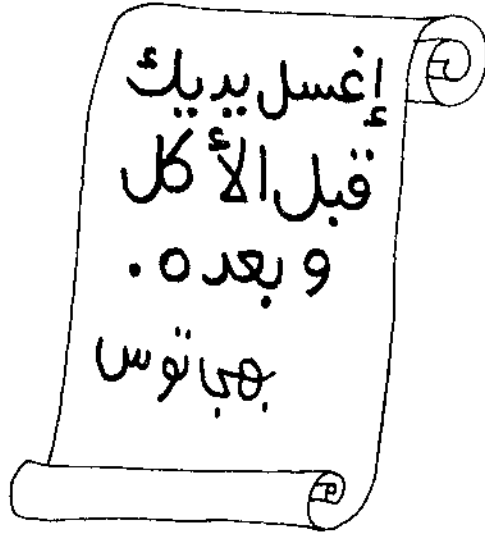 إغسل يديك
قبل الأكل
و بعده .
توس